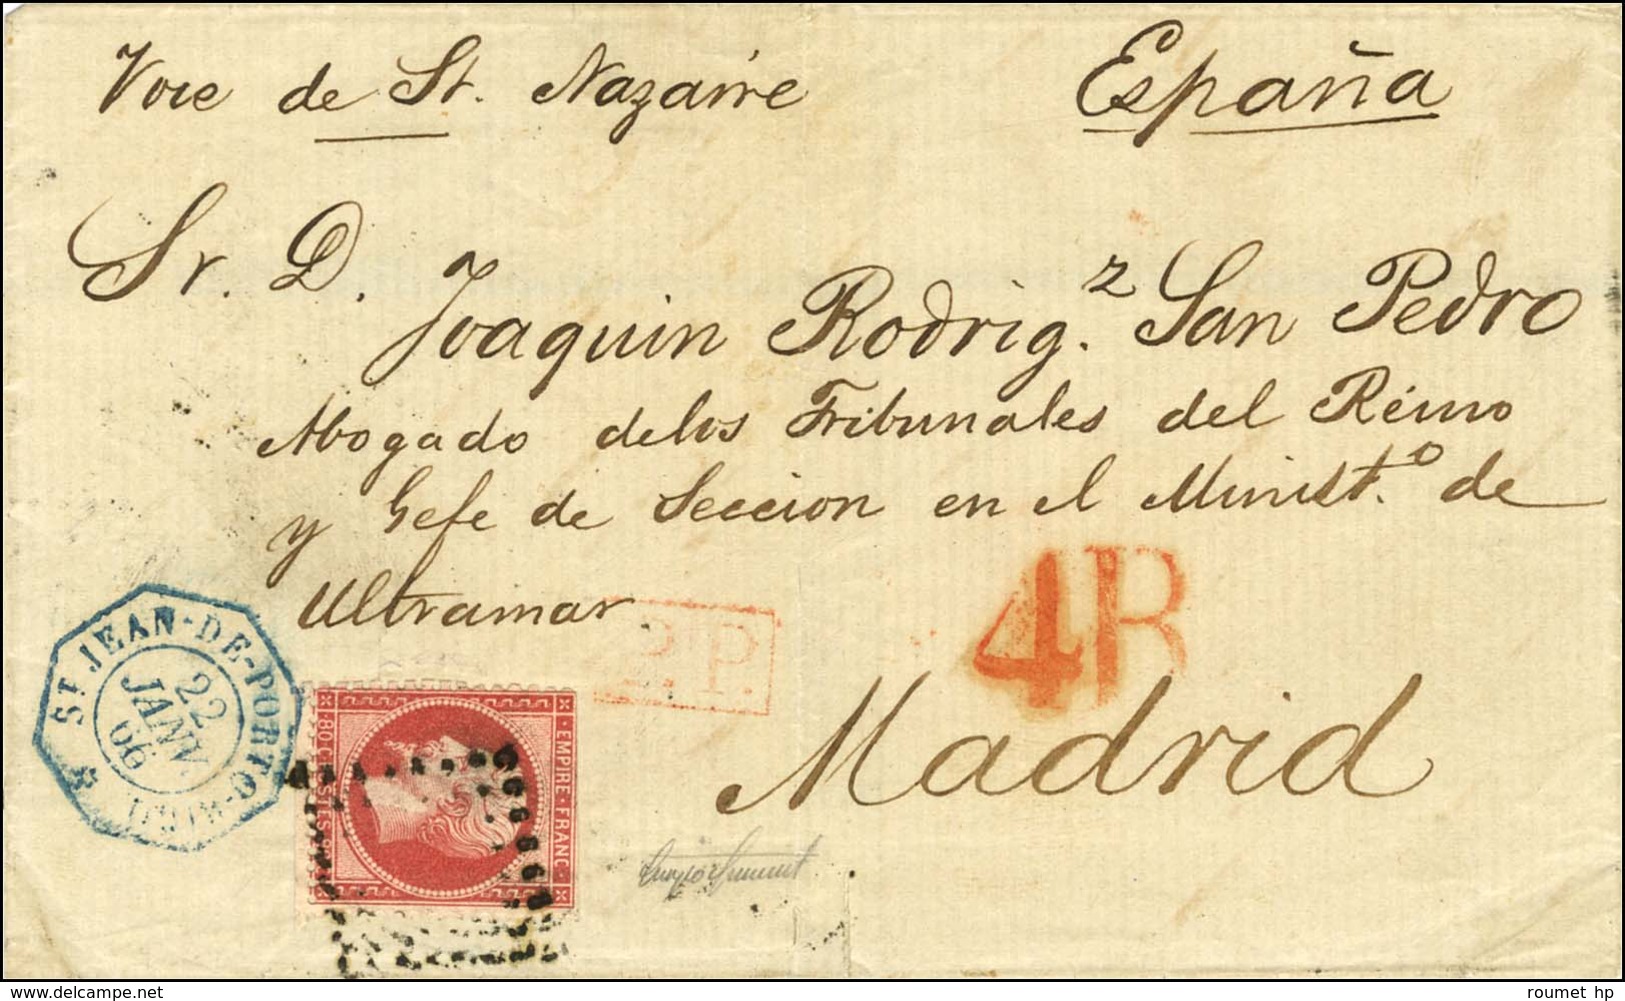 Voie de St. Nazaire España
Sr. D. Joaquin Rodrig.z San Pedro
Abogado de los Tribunales del Reino
y Gefe de Seccion en el Minist.o de
Ultramar.
P.P.
4R
Madrid
ST JEAN-DE-PORTO-RICO
22
JANV.
66
EMPIRE·FRANC·
·80·CENTS·80·
roumet hp